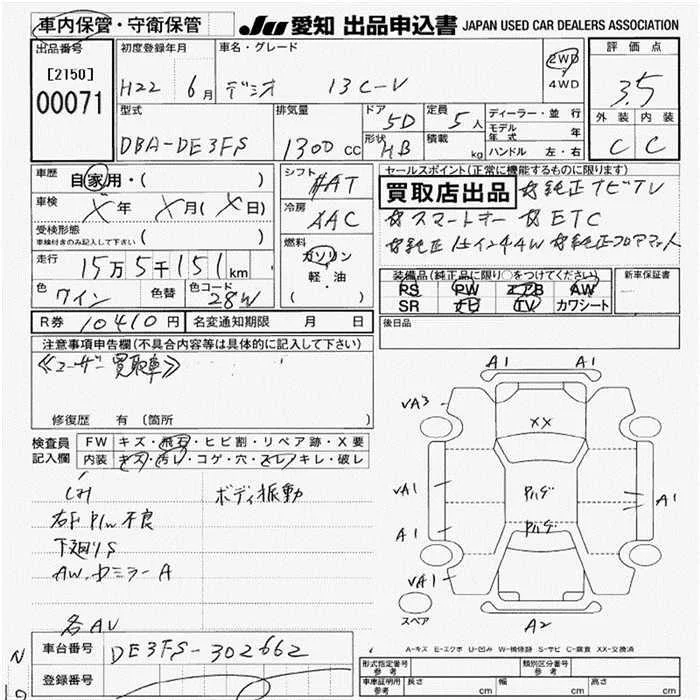 車内保管・守衛保管 Ju 愛知 出品申込書 JAPAN USED CAR DEALERS ASSOCIATION
出品番号 初度登録年月 車名・グレード 2WD 4WD 評価点
[2150] 00071 H22 6月 デミオ 13C-V 3.5
型式 排気量 ドア 5D 定員 5人 ディーラー・並行 外装 内装
DBA-DE3FS 1300cc 形状 HB 積載 kg モデル年式 年 C C
ハンドル 左・右
車歴 自家用・( ) シフト AT セールスポイント(正常に機能するものに限ります)
車検 X年 X月(X日) 冷房 AAC 買取店出品 ☆純正ナビTV
受検形態 ( ) ☆スマートキー ☆ETC
車検付きのみ記入して下さい 燃料 ガソリン 軽・油 ( )
走行 15万5千151km
色 ワイン 色替 色コード 28W
装備品(純正品に限り○をつけてください) 新車保証書
PS PW エアB AW
SR ナビ TV カワシート
R券 10410円 名変通知期限 月 日 後日品
注意事項申告欄(不具合内容等は具体的に記入して下さい)
≪ユーザー買取車≫
修復歴 有 〔箇所 〕
検査員記入欄 FW キズ・飛石・ヒビ割・リペア跡・X要
内装 キズ・汚レ・コゲ・穴・スレ・キレ・破レ
ボディ振動
不良
下廻りS
AW.ドミラーA
各AU
A1 A1
UA3
XX
UA1 Pハゲ A1
A1 Pハゲ
UA1
スペア
A2
A-キズ E-エクボ U-凹み W-補修跡 S-サビ C-腐食 XX-交換済
車台番号 DE3FS-302662
登録番号
形式指定番号 参考 類別区分番号 参考
車庫証明用 参考 長さ cm 幅 cm 高さ cm